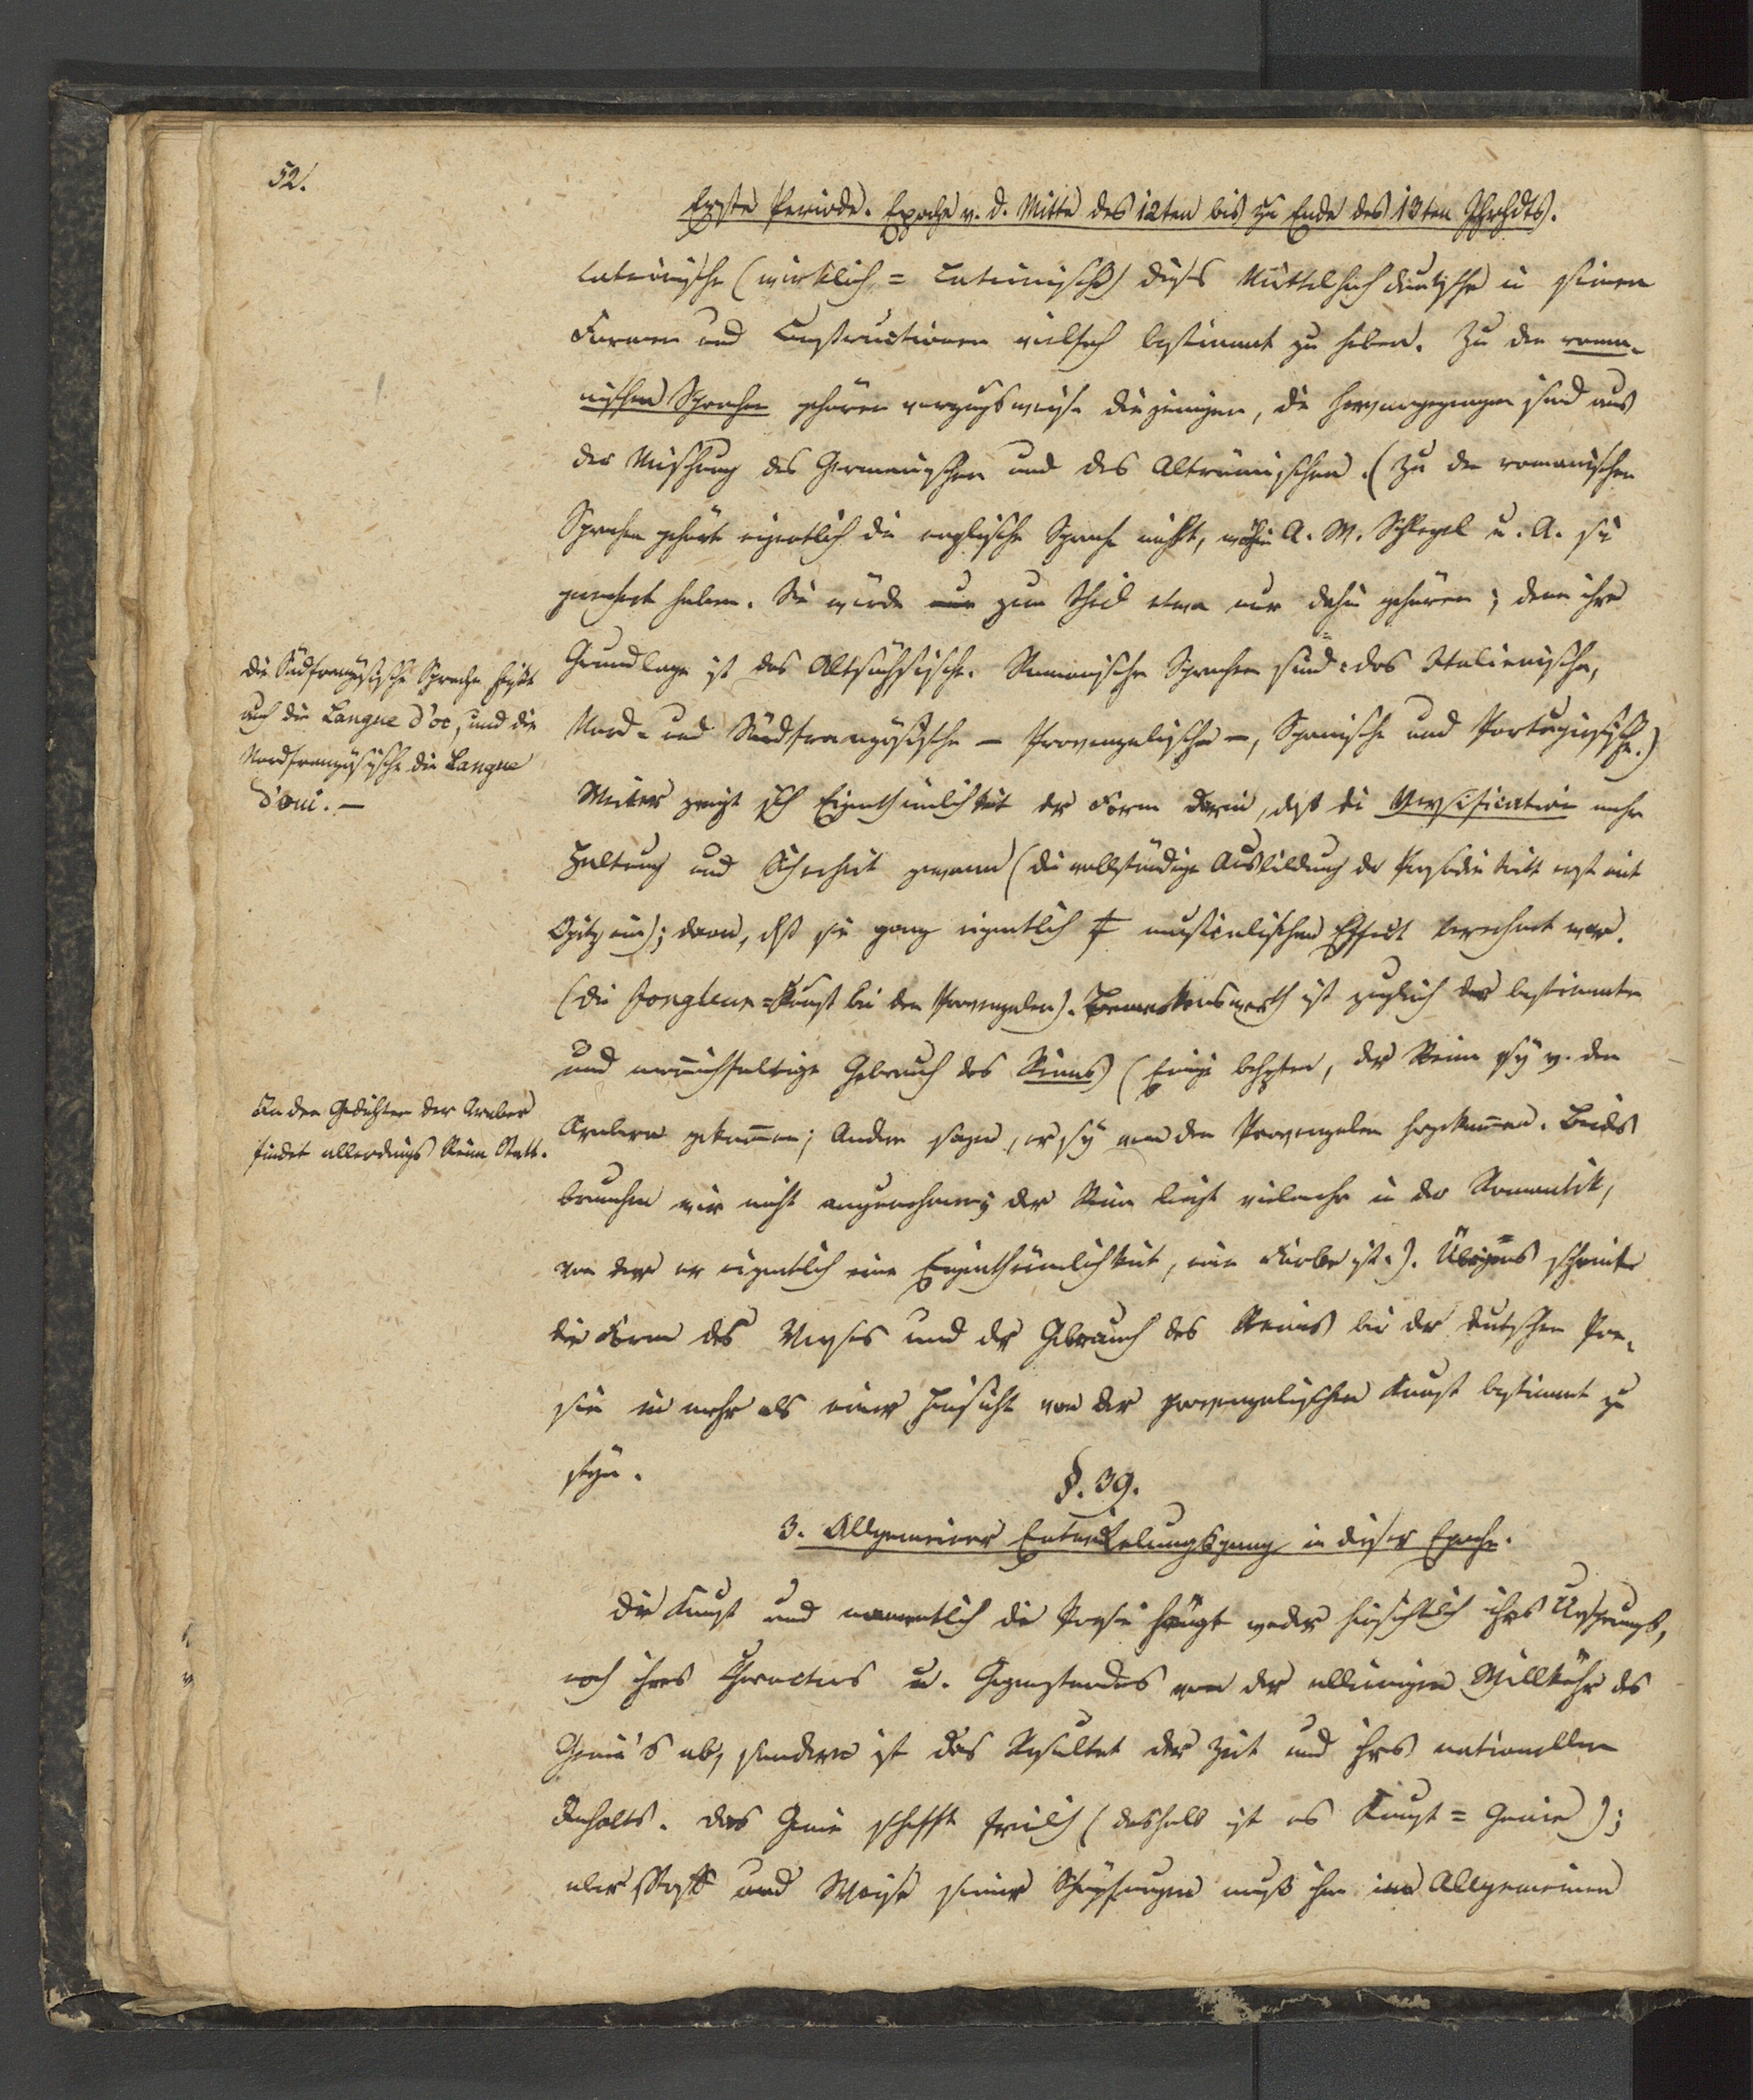 52.
Erste Periode. Epoche v. d. Mitte des 12ten bis zu Ende des 13ten Jhrhdts.
Lateinische (wirklich = Lateinische) dieses Mittelhochdeutsche in seinen
Formen und Constructionen vielfach bestimmt zu haben. Zu den roma-
nischen Sprachen gehören vorzugsweise diejenigen, die hervorgegangen sind aus
der Mischung des Germanischen und des Altrömischen. (Zu den romanischen
Sprachen gehört eigentlich die englische Sprache nicht, wohin A. W. Schlegel u. A. sie
gerechnet haben. Sie würde nur zum Theil etwa nur dahin gehören; denn ihre
Grundlage ist das Altsächsische. Romanische Sprachen sind: das Italienische,
Nord- und Südfranzösische – Provenzalische –, Spanische und Portugiesische.)
Weiter zeigt sich Eigenthümlichkeit der Form darin, daß die Versification mehr
Haltung und Sicherheit gewann (die vollständige Ausbildung der Prosodie tritt erst mit
Opitz ein); dann, daß sie ganz eigentlich musicalischen Effect berechnet war.
(die Jongleur=Kunst bei den Provenzalen). Bemerkenswerth ist zugleich der bestimmte
und mannichfaltige Gebrauch des Reims (Einige behpten, der Reim sey v. den
Arabern gekommen; Andere sagen, er sey von den Provenzalen hergekommen. Beides
brauchen wir nicht anzunehmen; der Reim liegt vielmehr in der Romantik,
von der er eigentlich eine Eigenthümlichkeit, eine Farbe ist.). Übrigens scheint
die Form des Verses und der Gebrauch des Reims bei der deutschen Poe-
sie in mehr als einer Hinsicht von der provenzalischen Kunst bestimmt zu
seyn.
§. 39.
3. Allgemeiner Entwickelungsgang in dieser Epoche.
Die Kunst und namentlich die Poesie hängt weder hinsichtlich ihres Ursprungs,
noch ihres Characters u. Gegenstandes von der alleinigen Willkühr des
Genie's ab, sondern ist das Resultat der Zeit und ihres nationellen
Inhalts. Das Genie schafft freilich (deshalb ist es Kunst=Genie);
aber Stoff und Weise seiner Schöpfungen muß ihm im Allgemeinen
Die Südfranzösische Sprache heißt
auch die Langue d'oc, und die
Nordfranzösische die Langue
d'oui. –
In den Gedichten der Araber
findet allerdings Reim Statt.